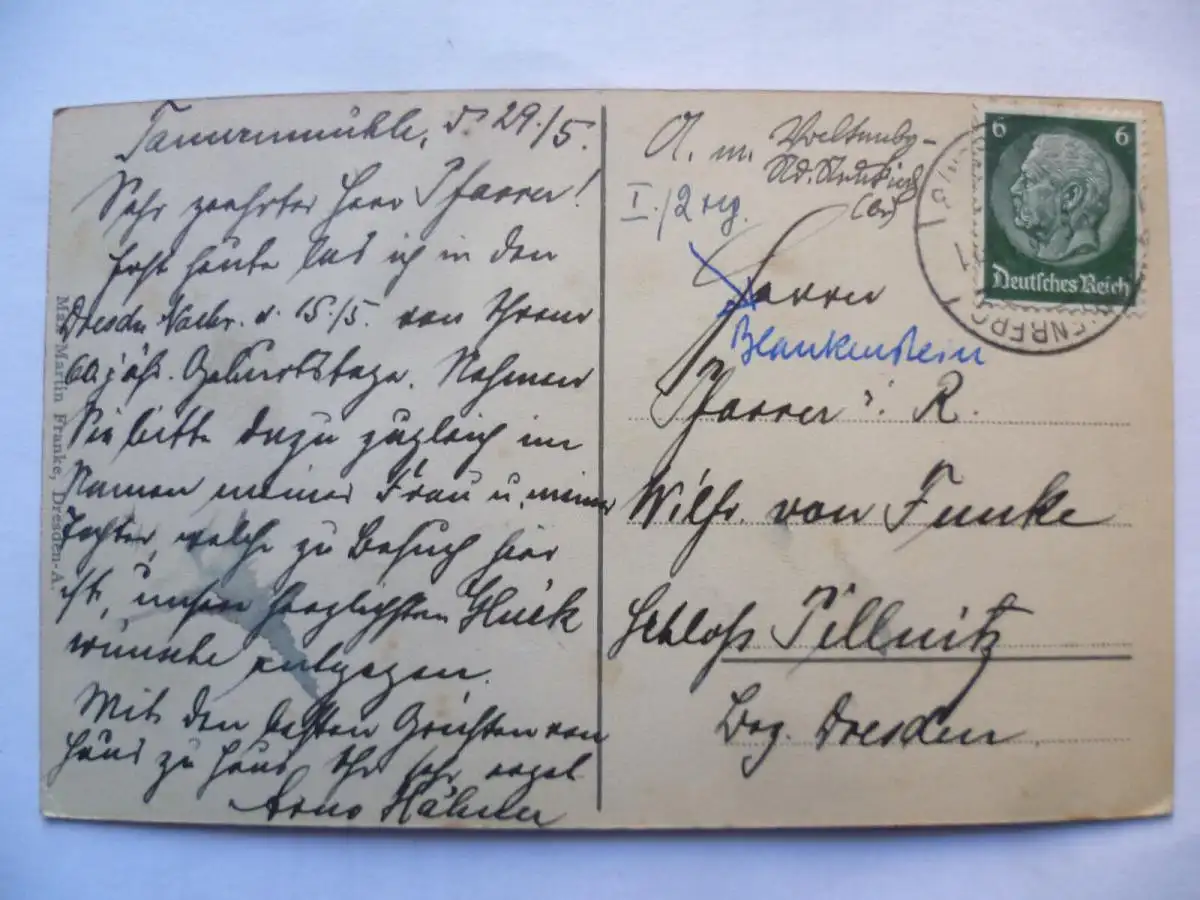 Tannenmühle, d. 29./5.
Sehr geehrter Herr Pfarrer!
Erst heute las ich in den
Dresdn Nachr. v. 15./5. von Ihrem
60 jähr. Geburtstage. Nehmen
Sie bitte dazu zugleich im
Namen meiner Frau u. meiner
Tochter, welche zu Besuch hier
ist, unsern herzlichsten Glück
wünsche entgegen.
Mit den besten Grüßen von
Haus zu Haus Ihr sehr ergel
Arno Hähner
Max Martin Franke, Dresden-A.
A. m.
I./2 rg.
Herrn
Blankenstein
Pfarrer i. R.
Wilh. von Funke
Schloß Pillnitz
Bez. Dresden
6 6
Deutsches Reich